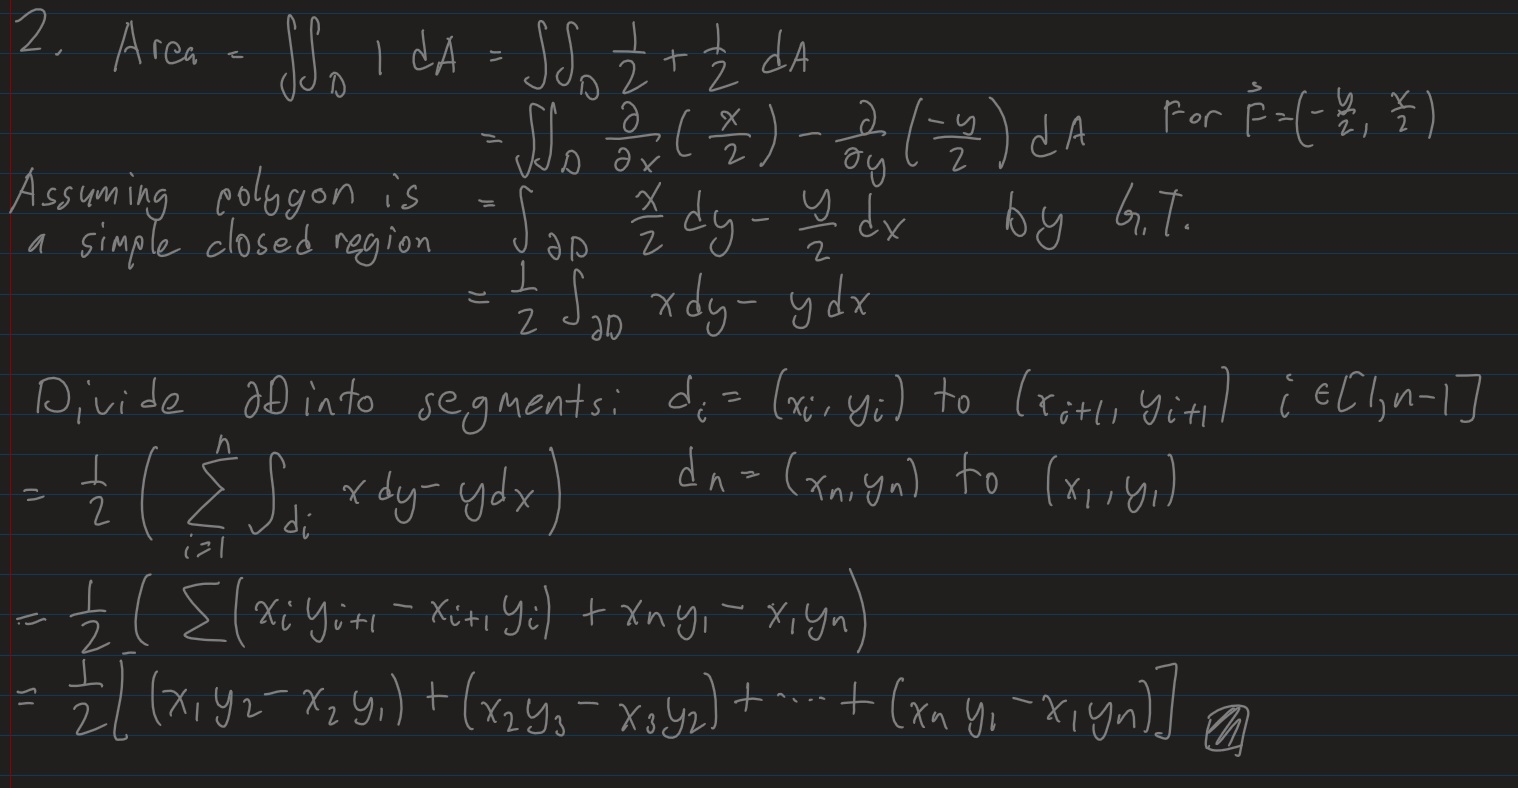 2. Area = ∬_D 1 dA = ∬_D 1/2 + 1/2 dA
= ∬_D ∂/∂x (x/2) - ∂/∂y (-y/2) dA For F⃗ = (-y/2, x/2)
Assuming polygon is = ∫_∂D x/2 dy - y/2 dx by G.T.
a simple closed region
= 1/2 ∫_∂D x dy - y dx
Divide ∂D into segments: d_i = (x_i, y_i) to (x_{i+1}, y_{i+1}) i ∈ [1, n-1]
= 1/2 ( ∑_{i=1}^{n} ∫_{d_i} x dy - y dx ) d_n = (x_n, y_n) to (x_1, y_1)
= 1/2 ( ∑ (x_i y_{i+1} - x_{i+1} y_i) + x_n y_1 - x_1 y_n )
= 1/2 [ (x_1 y_2 - x_2 y_1) + (x_2 y_3 - x_3 y_2) + ..... + (x_n y_1 - x_1 y_n) ]